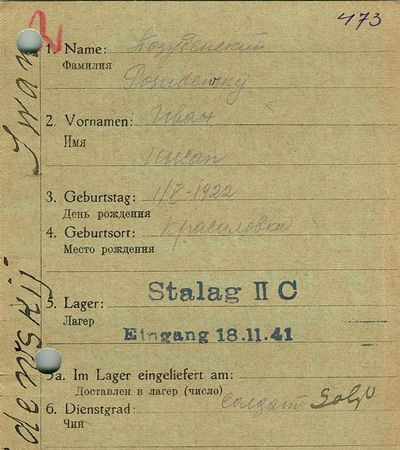 473
1. Name:
Фамилия
2. Vornamen: Иван
Имя
3. Geburtstag: 1/V-1922
День рождения
4. Geburtsort: Красиловка
Место рождения
5. Lager: Stalag II C
Лагер
Eingang 18.11.41
5a. Im Lager eingeliefert am:
Доставлен в лагер (число)
6. Dienstgrad: солдат Sold
Чин
Iwan